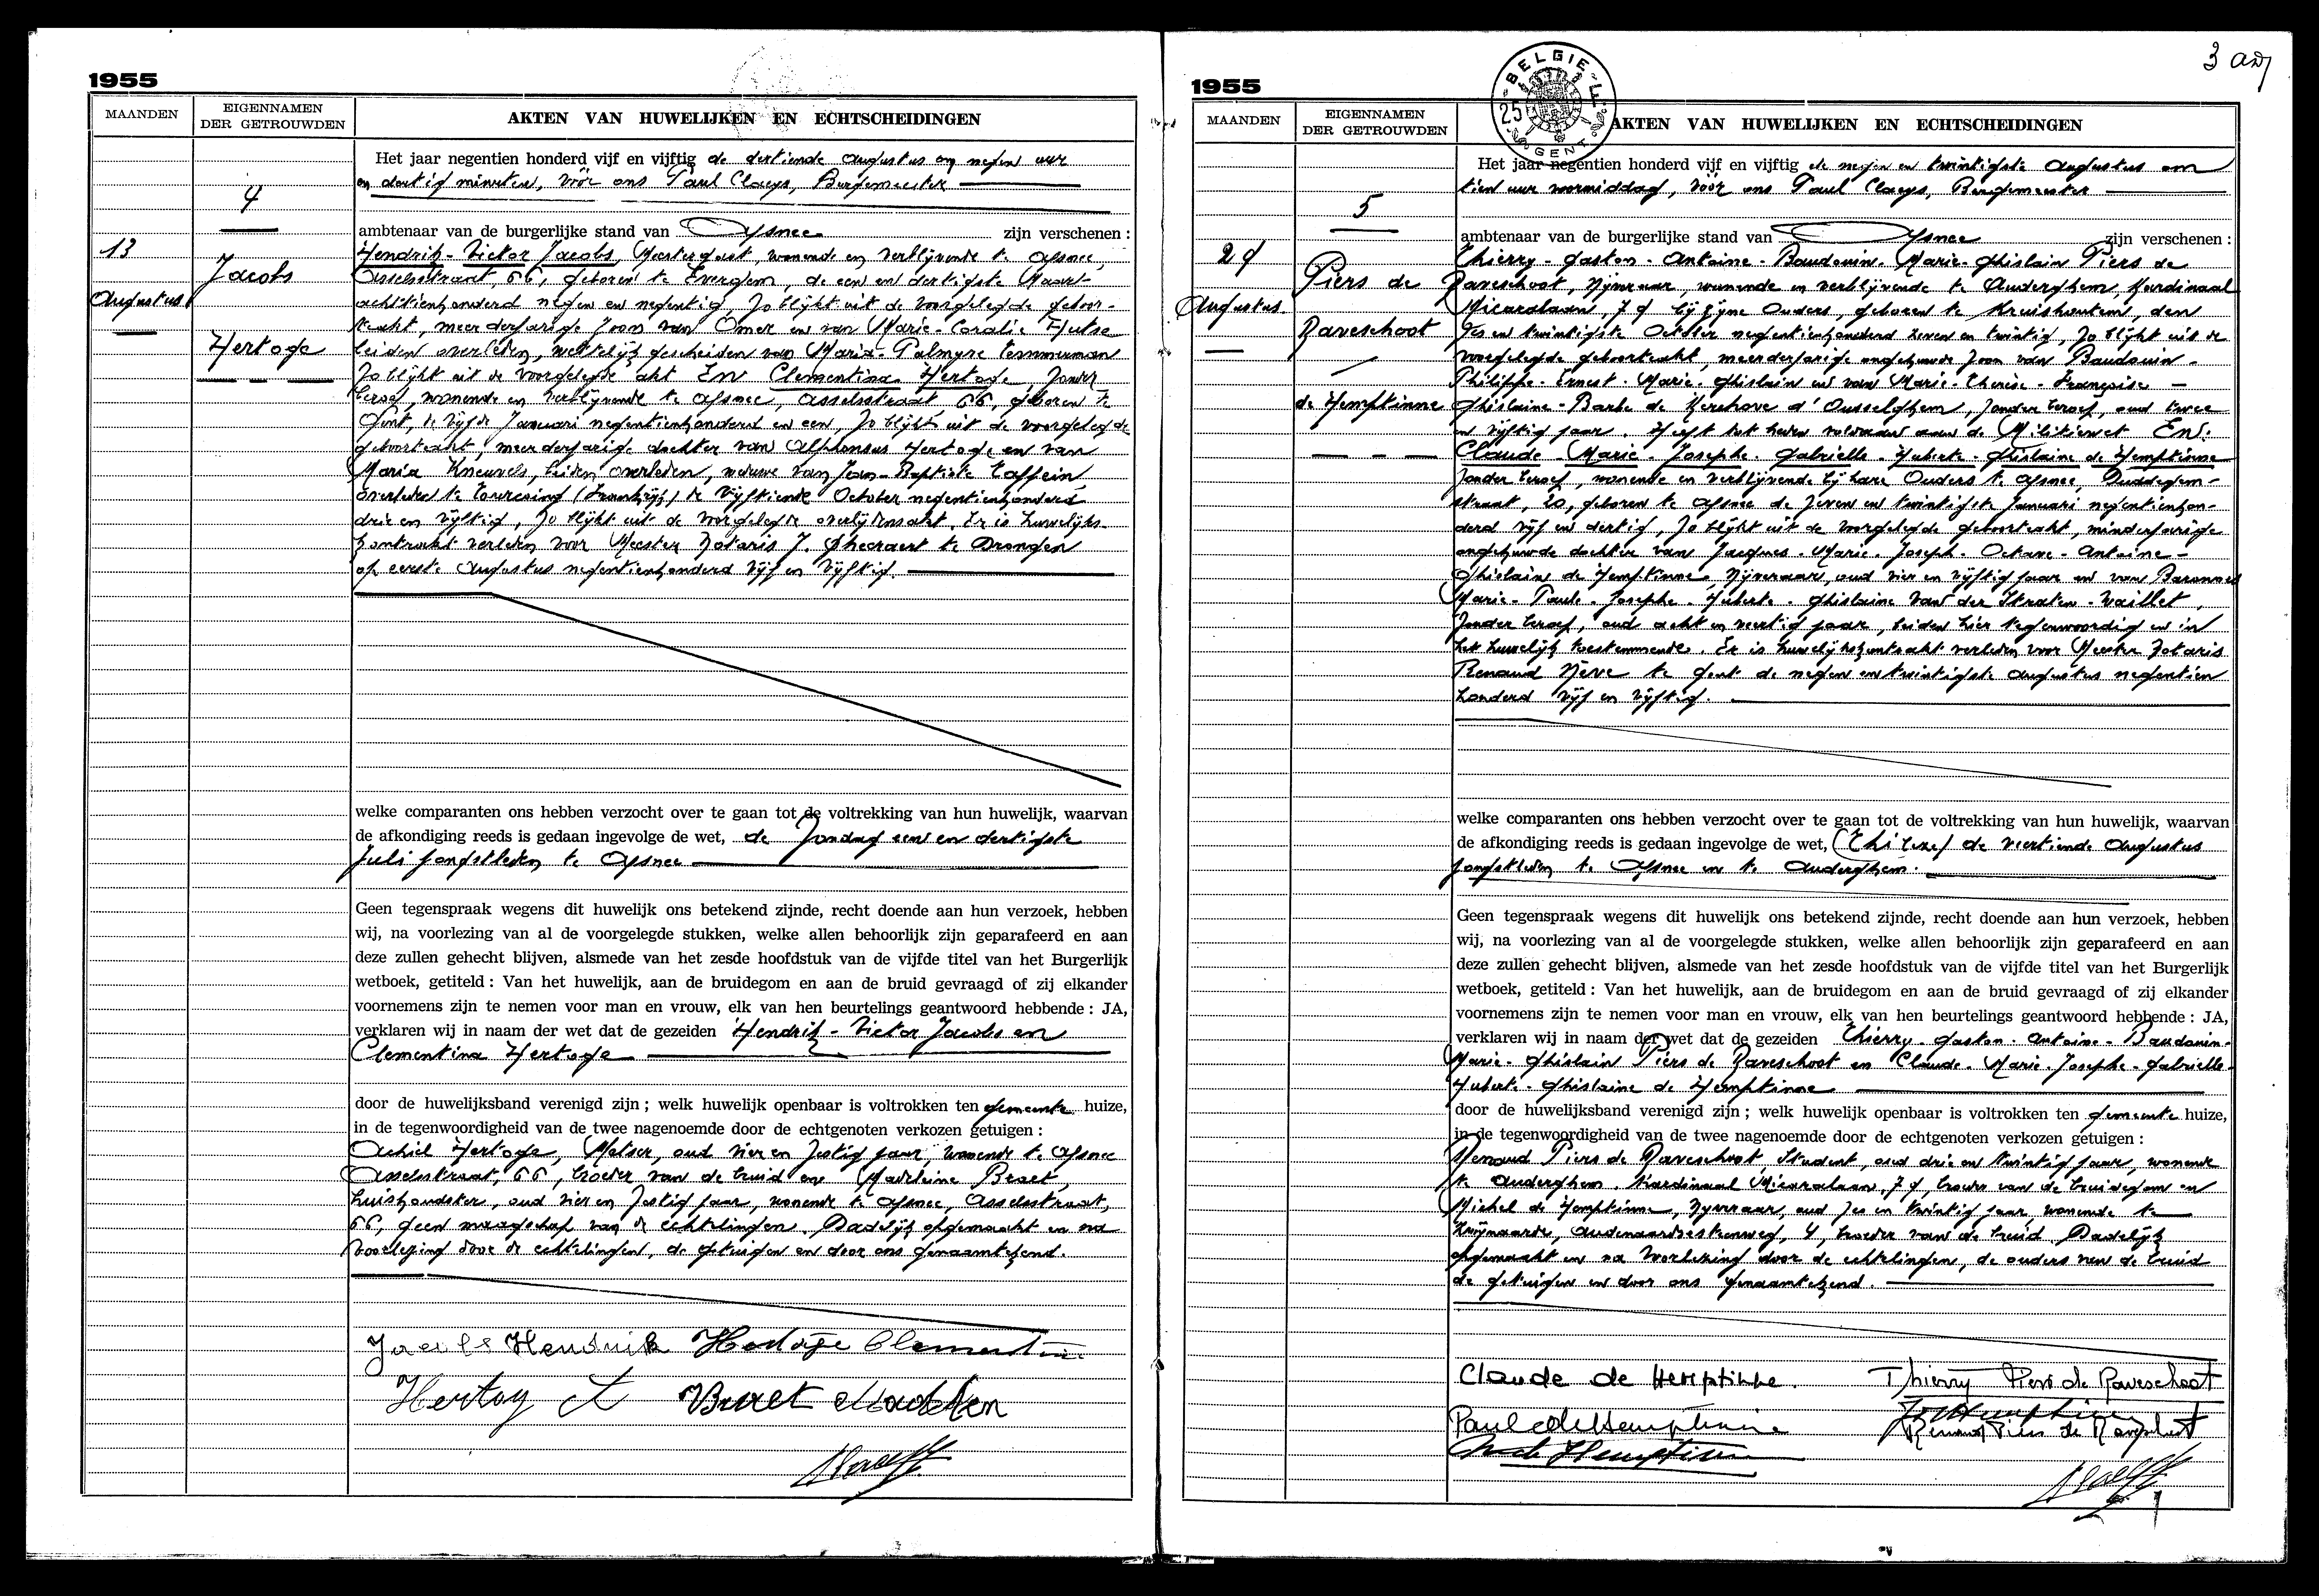 1955
MAANDEN
EIGENNAMEN
DER GETROUWDEN
AKTEN VAN HUWELIJKEN EN ECHTSCHEIDINGEN
4
13
Augustus
Jacobs
Hertoge
Het jaar negentien honderd vijf en vijftig de dertiende Augustus om negen uur
en dertig minuten, vóór ons Paul Claeys, Burgemeester
ambtenaar van de burgerlijke stand van Afsnee zijn verschenen :
Hendrik - Victor Jacobs, Meestergast, wonende en verblijvende te Afsnee,
Asselsstraat, 66, geboren te Evergem, de een en dertigste Maart
achttienhonderd negen en negentig, zo blijkt uit de voorgelegde geboor-
teakt, meerderjarige zoon van Omer en van Marie - Coralie Hulse
beiden overleden, wettelijk gescheiden van Maria - Palmyre Temmerman
zo blijkt uit de voorgelegde akt En Clementina Hertoge, zonder
beroep, wonende en verblijvende te Afsnee, Asselsstraat 66, geboren te
Gent, de vijfde Januari negentienhonderd en een, zo blijkt uit de voorgelegde
geboorteakt, meerderjarige dochter van Alphonsus Hertoge en van
Maria Kneuvels, beiden overleden, weduwe van Jean-Baptiste
overleden te Tourcoing (Frankrijk) de vijftiende October negentienhonderd
drie en vijftig, zo blijkt uit de voorgelegde overlijdensakt. Er is huwelijks-
kontrakt verleden voor Meester Notaris J. Gheeraert te Drongen
op eerste Augustus negentienhonderd vijf en vijftig.
welke comparanten ons hebben verzocht over te gaan tot de voltrekking van hun huwelijk, waarvan
de afkondiging reeds is gedaan ingevolge de wet, de Zondag een en dertigste
Juli jongstleden te Afsnee
Geen tegenspraak wegens dit huwelijk ons betekend zijnde, recht doende aan hun verzoek, hebben
wij, na voorlezing van al de voorgelegde stukken, welke allen behoorlijk zijn geparafeerd en aan
deze zullen gehecht blijven, alsmede van het zesde hoofdstuk van de vijfde titel van het Burgerlijk
wetboek, getiteld : Van het huwelijk, aan de bruidegom en aan de bruid gevraagd of zij elkander
voornemens zijn te nemen voor man en vrouw, elk van hen beurtelings geantwoord hebbende : JA,
verklaren wij in naam der wet dat de gezeiden Hendrik - Victor Jacobs en
Clementina Hertoge
door de huwelijksband verenigd zijn ; welk huwelijk openbaar is voltrokken ten gemeente huize,
in de tegenwoordigheid van de twee nagenoemde door de echtgenoten verkozen getuigen :
Achiel Hertoge, Metser, oud vier en zestig jaar, wonende te Afsnee
Asselsstraat, 66, broeder van de bruid en Madeleine
huishoudster, oud vier en zestig jaar, wonende te Afsnee, Asselsstraat,
66, geen maagschap van de echtelingen. Dadelijk opgemaakt en na
voorlezing door de echtelingen, de getuigen en door ons genaamtekend.
Jacobs Hendrik Hertoge Clementina
1955
3
BELGIE
GENT
MAANDEN
EIGENNAMEN
DER GETROUWDEN
AKTEN VAN HUWELIJKEN EN ECHTSCHEIDINGEN
5
29
Augustus
Piers de
Raveschoot
de Hemptinne
Het jaar negentien honderd vijf en vijftig de negen en twintigste Augustus om
tien uur voormiddag, vóór ons Paul Claeys, Burgemeester
ambtenaar van de burgerlijke stand van Afsnee zijn verschenen :
Thierry - Gaston - Antoine - Baudouin - Marie - Ghislain Piers de
Raveschoot, Nijveraar, wonende en verblijvende te Auderghem, Kardinaal
Micaralaan, 79 bij zijne Ouders, geboren te Kruishoutem, den
zes en twintigste October negentienhonderd zeven en twintig, zo blijkt uit de
voorgelegde geboorteakt, meerderjarige ongehuwde zoon van Baudouin -
Philippe - Ernest - Marie - Ghislain en van Marie - Thérèse - Françoise -
Ghislaine - Barbe de Kerchove d'Ousselghem, zonder beroep, oud twee
en vijftig jaar. Heeft tot heden voldaan aan de Militiewet En:
Claude - Marie - Josephe - Gabrielle - Huberte - Ghislaine de Hemptinne
zonder beroep, wonende en verblijvende bij hare Ouders te Afsnee, Duddegem-
straat, 20, geboren te Afsnee de zeven en twintigste Januari negentienhon-
derd vijf en dertig, zo blijkt uit de voorgelegde geboorteakt, minderjarige
ongehuwde dochter van Jacques - Marie - Joseph - Octave - Antoine -
Ghislain de Hemptinne Nijveraar, oud vier en vijftig jaar en van Barones
Marie - Paule - Josephe - Huberte - Ghislaine Van der Straten - Waillet,
zonder beroep, oud acht en veertig jaar, beiden hier tegenwoordig en in
het huwelijk toestemmende. Er is huwelijkskontrakt verleden voor Meester Notaris
Renaud Nève te Gent de negen en twintigste Augustus negentien
honderd vijf en vijftig.
welke comparanten ons hebben verzocht over te gaan tot de voltrekking van hun huwelijk, waarvan
de afkondiging reeds is gedaan ingevolge de wet, de veertiende Augustus
jongstleden te Afsnee en te Auderghem.
Geen tegenspraak wegens dit huwelijk ons betekend zijnde, recht doende aan hun verzoek, hebben
wij, na voorlezing van al de voorgelegde stukken, welke allen behoorlijk zijn geparafeerd en aan
deze zullen gehecht blijven, alsmede van het zesde hoofdstuk van de vijfde titel van het Burgerlijk
wetboek, getiteld : Van het huwelijk, aan de bruidegom en aan de bruid gevraagd of zij elkander
voornemens zijn te nemen voor man en vrouw, elk van hen beurtelings geantwoord hebbende : JA,
verklaren wij in naam der wet dat de gezeiden Thierry - Gaston - Antoine - Baudouin -
Marie - Ghislain Piers de Raveschoot en Claude - Marie - Josephe - Gabrielle -
Huberte - Ghislaine de Hemptinne
door de huwelijksband verenigd zijn ; welk huwelijk openbaar is voltrokken ten gemeente huize,
in de tegenwoordigheid van de twee nagenoemde door de echtgenoten verkozen getuigen :
Renaud Piers de Raveschoot, Student, oud drie en twintig jaar, wonende
te Auderghem, Kardinaal Micaralaan, 79, broeder van de bruidegom en
Michel de Hemptinne, Nijveraar, oud zes en twintig jaar, wonende te
Zwijnaarde, Oudenaardsesteenweg, 4, broeder van de bruid. Dadelijk
opgemaakt en na voorlezing door de echtelingen, de ouders van de bruid
de getuigen en door ons genaamtekend.
Claude de Hemptinne. Thierry Piers de Raveschoot
Renaud Piers de Raveschoot